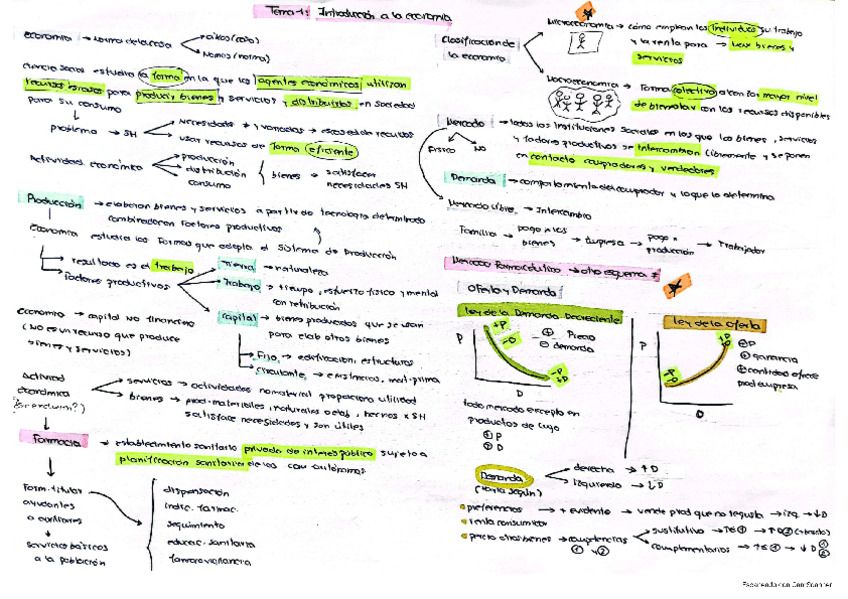 Tema 1: Introducción a la economía
economía → norma de la casa
oikos (casa)
Nomos (norma)
ciencia social estudia la forma en la que los agentes económicos utilizan
recursos escasos para producir bienes y servicios y distribuirlos en sociedad
para su consumo
problema → SH
necesidades ≠ y variadas → escasez de recursos
usar recursos de forma eficiente
Actividad económica
producción
distribución
consumo
bienes → satisfacer
necesidades SH
Producción → elaboran bienes y servicios a partir de tecnología determinada
combinando factores productivos
economía estudia las formas que adopta el sistema de producción
resultado es el trabajo
factores productivos
Tierra → naturaleza
Trabajo → tiempo, esfuerzo físico y mental
con retribución
capital → bienes producidos que se usan
para elab otros bienes
Fijo → edificación, estructuras
circulante → existencias, mat-prima
economía → capital no financiero
(No es un recurso que produce
bienes y servicios)
Actividad
económica
servicios → actividades no material proporciona utilidad
bienes → prod. materiales, naturales o elab, hechos x SH
satisface necesidades y son útiles
Farmacia → establecimiento sanitario privado de interés público sujeto a
planificación sanitaria de las com autónomas
Farm. titular
ayudantes
o auxiliares
servicios básicos
a la población
dispensación
indic. farmac.
seguimiento
educac. sanitaria
farmacovigilancia
Clasificación de
la economía
Microeconomía → cómo emplean los individuos su trabajo
y la renta para → usar bienes y
servicios
Macroeconomía → Forma colectiva alcanzar mayor nivel
de bienestar con los recursos disponibles
Mercado → todas las instituciones sociales en las que los bienes, servicios
y factores productivos se intercambian libremente y se ponen
en contacto compradores y vendedores
Físico
No
Demanda → comportamiento del comprador y lo que lo determina
Mercado libre → Intercambio
Familia → pago x los
bienes → Empresa → pago x
producción → Trabajador
Mercado Farmacéutico → otro esquema ≠
Oferta y Demanda
Ley de la Demanda Decreciente
P
+P
-D
-P
+D
D
⊕ Precio
⊖ demanda
todo mercado excepto en
productos de lujo
⊕ P
⊕ D
Ley de la Oferta
P
D
⊕ P
⊕ ganancia
⊕ cantidad oferta
prod empresa
Demanda
(varía según)
derecha → ↑D
izquierda → ↓D
preferencias → + evidente → vende prod que no regusta → izq → ↓D
renta consumidor
precio otros bienes → competencias
① y ②
sustitutivo
complementarios
Escaneado con CamScanner